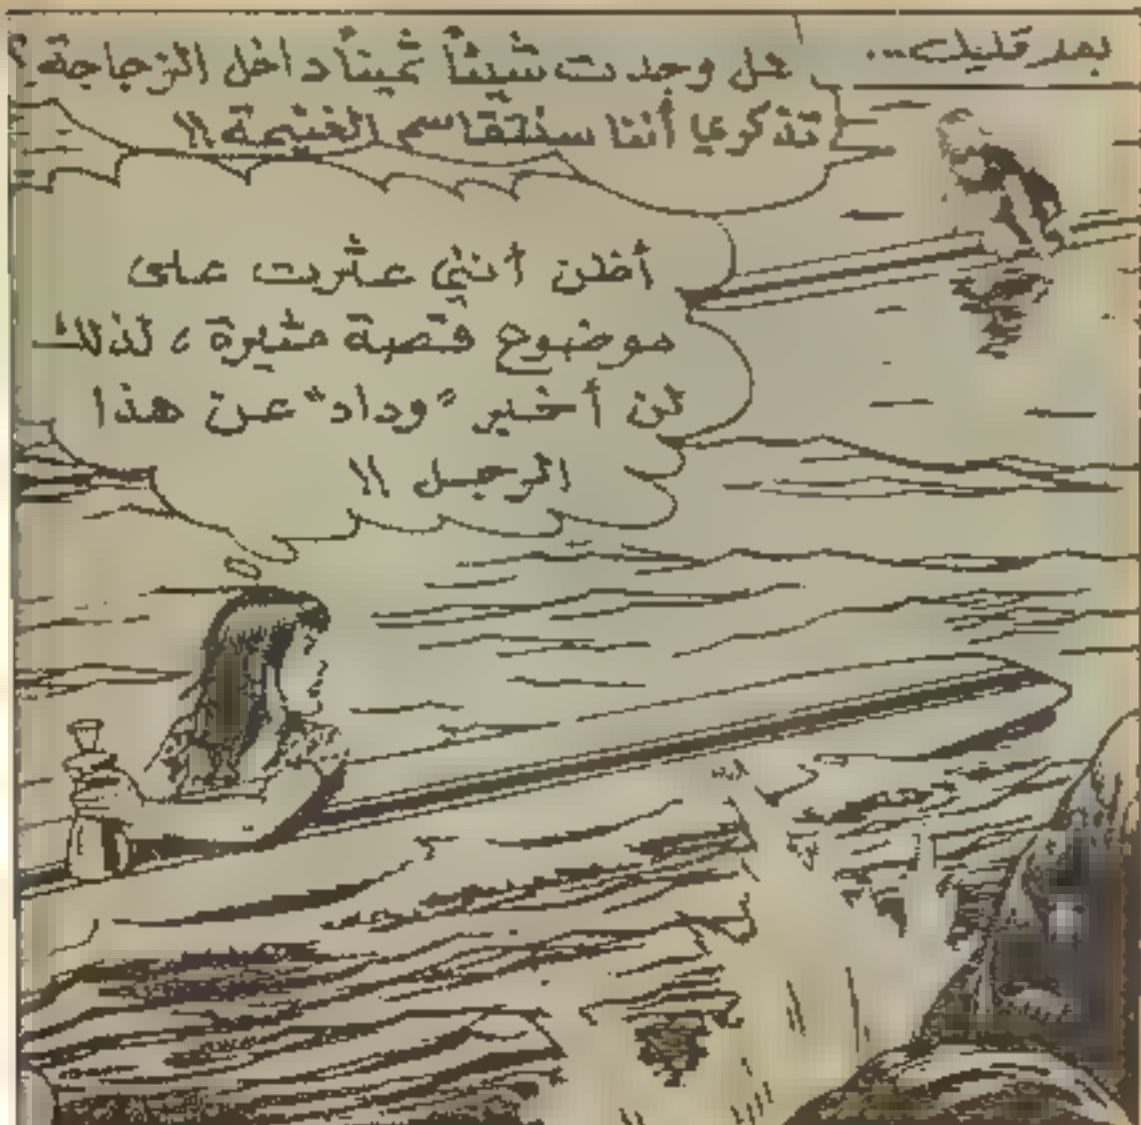 بعد قليل...
هل وجدت شيئاً ثميناً داخل الزجاجة؟
تذكري أننا سنتقاسم الغنيمة!!
أظن أنني عثرت على
موضوع قصة مثيرة، لذلك
لن أخبر "وداد" عن هذا
الرجل!!